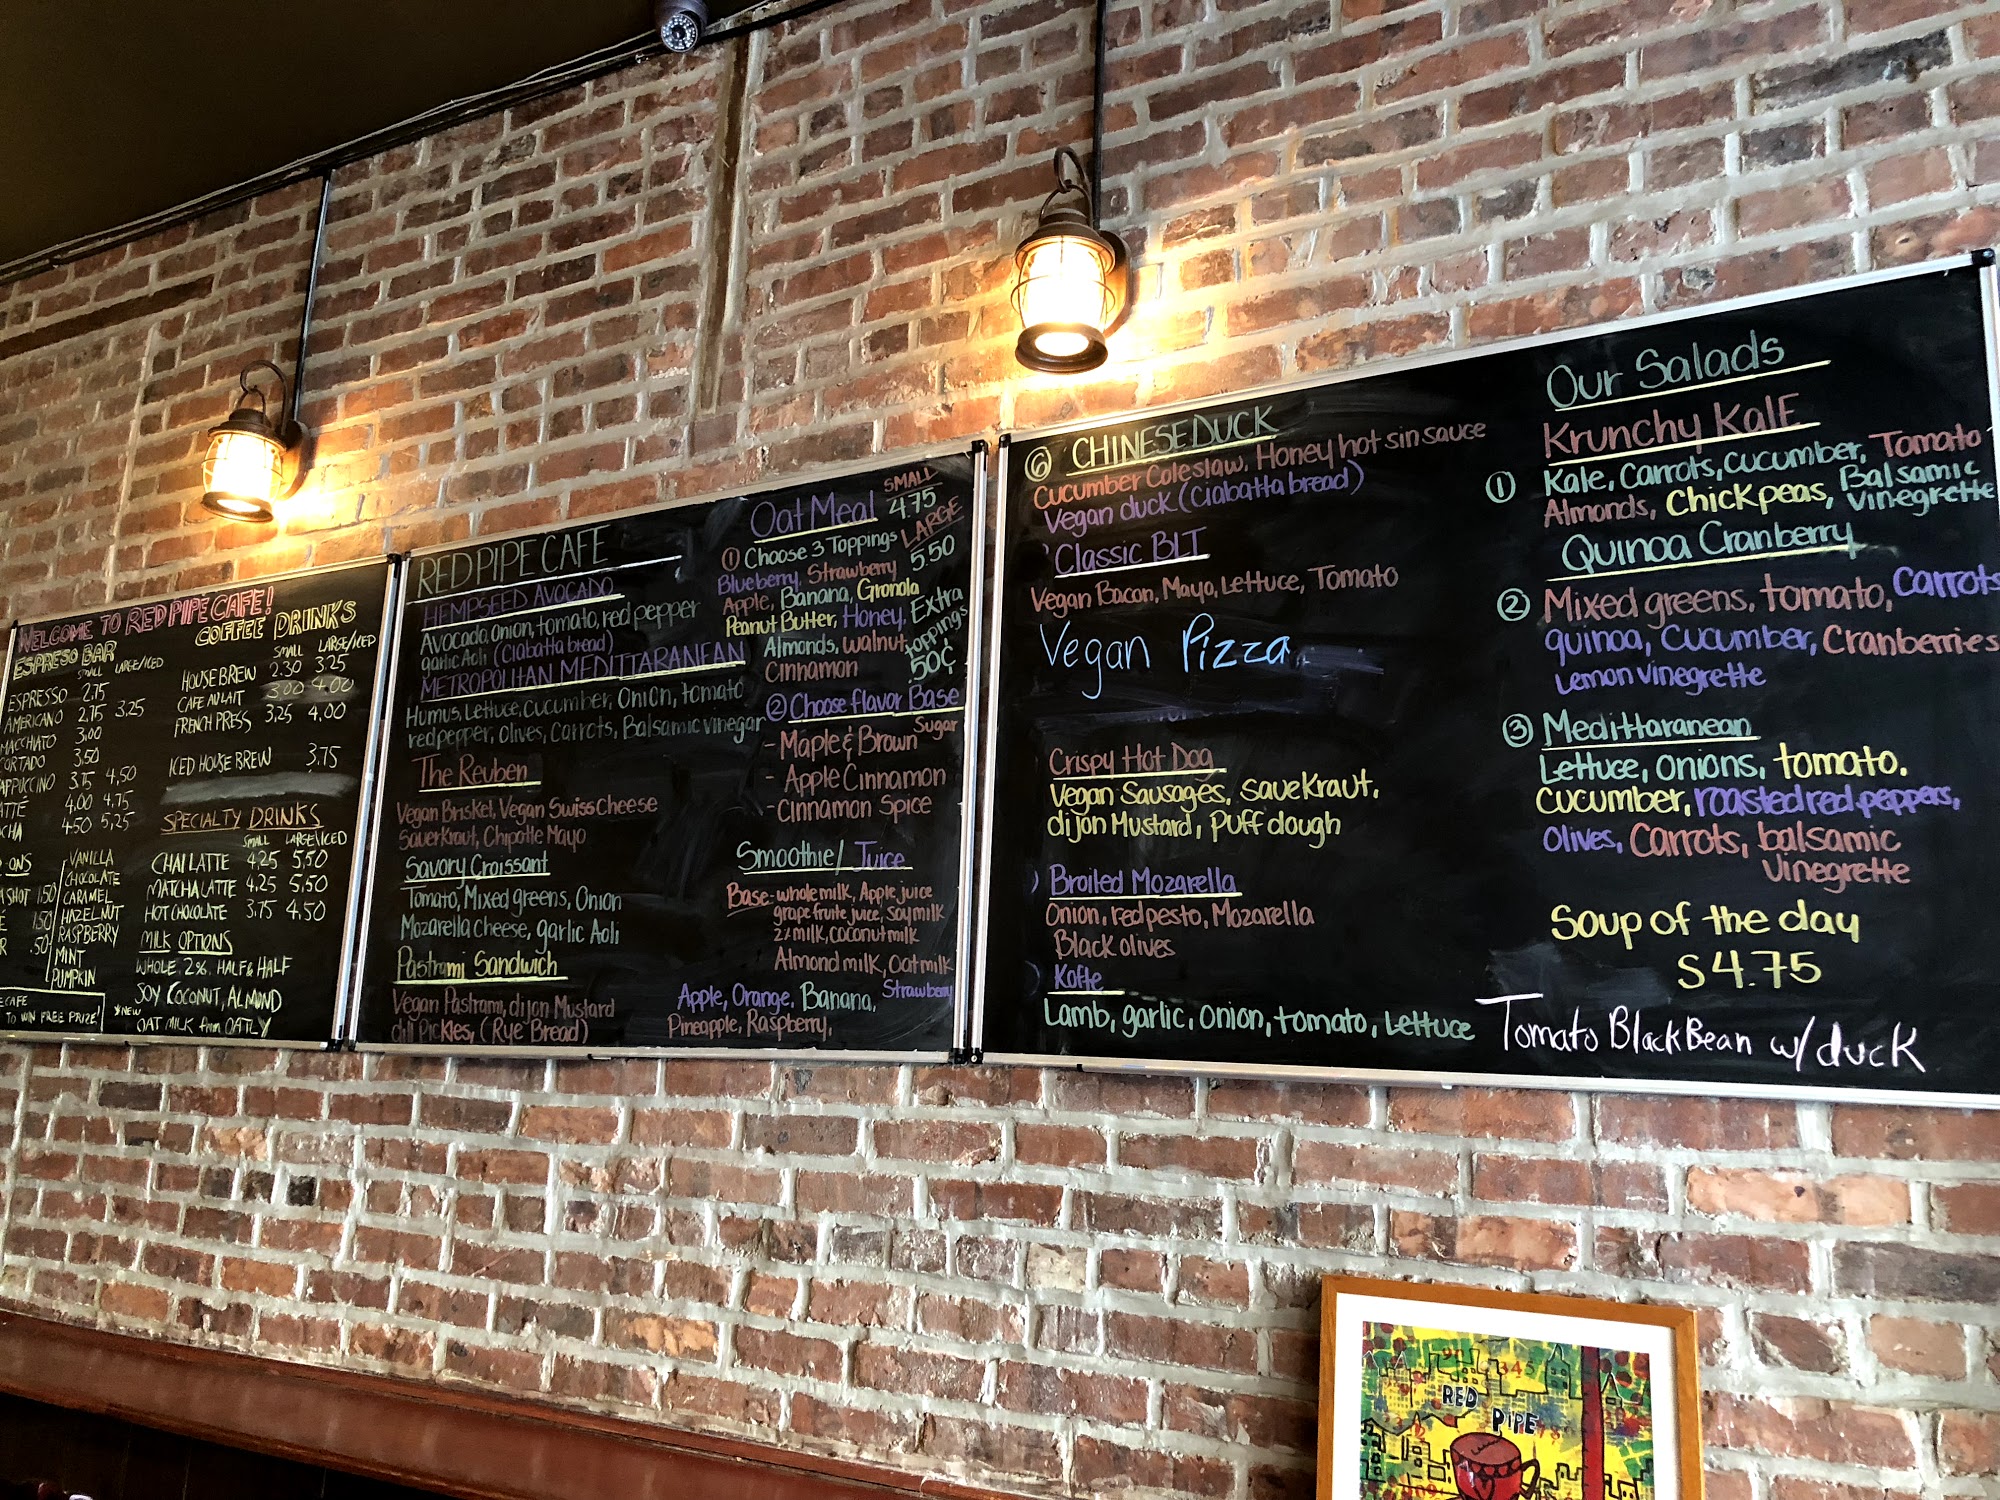 WELCOME TO RED PIPE CAFE!
ESPRESO BAR
SMALL LARGE/ICED
ESPRESSO 2.75
AMERICANO 2.75 3.25
MACCHIATO 3.00
CORTADO 3.50
APPUCCINO 3.75 4.50
ATTÉ 4.00 4.75
CHA 4.50 5.25
ONS
VANILLA
CHOCOLATE
A SHOT 1.50 CARAMEL
1.50 HAZELNUT
.50 RASPBERRY
MINT
PUMPKIN
E CAFE
TO WIN FREE PRIZE!
COFFEE DRINKS
SMALL LARGE/ICED
HOUSE BREW 2.30 3.25
CAFE AU LAIT 3.00 4.00
FRENCH PRESS 3.25 4.00
ICED HOUSE BREW 3.75
SPECIALTY DRINKS
SMALL LARGE/ICED
CHAI LATTE 4.25 5.50
MATCHA LATTE 4.25 5.50
HOT CHOCOLATE 3.75 4.50
MILK OPTIONS
WHOLE, 2%, HALF & HALF
SOY COCONUT, ALMOND
*NEW
OAT MILK from OATLY
RED PIPE CAFE
HEMPSEED AVOCADO
Avocado, onion, tomato, red pepper
garlic Aoli (Ciabatta bread)
METROPOLITAN MEDITTARANEAN
Humus, Lettuce, cucumber, Onion, tomato
red pepper, Olives, Carrots, Balsamic vinegar
The Reuben
Vegan Brisket, Vegan Swiss Cheese
Sauerkraut, Chipotle Mayo
Savory Croissant
Tomato, Mixed greens, Onion
Mozarella cheese, garlic Aoli
Pastrami Sandwich
Vegan Pastrami, dijon Mustard
dill Pickles, (Rye Bread)
Oat Meal
SMALL
4.75
LARGE
5.50
① Choose 3 Toppings
Blueberry, Strawberry
Apple, Banana, Gronola
Peanut Butter, Honey,
Almonds, walnut
Cinnamon
Extra
Toppings
50¢
② Choose flavor Base
- Maple & Brown Sugar
- Apple Cinnamon
- Cinnamon Spice
Smoothie/Juice
Base- whole milk, Apple juice
grape fruite juice, Soy milk
2% milk, coconut milk
Almond milk, Oat milk
Apple, Orange, Banana, Strawberry
Pineapple, Raspberry,
⑥ CHINESE DUCK
Cucumber Coleslaw, Honey hot sin sauce
Vegan duck (Ciabatta bread)
Classic BLT
Vegan Bacon, Mayo, Lettuce, Tomato
Vegan Pizza
Crispy Hot Dog
Vegan Sausages, saueKraut,
dijon Mustard, Puff dough
) Broiled Mozarella
Onion, red pesto, Mozarella
Black olives
) Kofte
Lamb, garlic, Onion, tomato, Lettuce
Our Salads
Krunchy KalE
① Kale, Carrots, cucumber, Tomato
Almonds, Chickpeas, Balsamic
vinegrette
Quinoa Cranberry
② Mixed greens, tomato, Carrots
quinoa, Cucumber, Cranberries
Lemon vinegrette
③ Medittaranean
Lettuce, Onions, tomato.
Cucumber, roasted red peppers,
Olives, Carrots, balsamic
Vinegrette
Soup of the day
$4.75
Tomato Black Bean w/duck
RED PIPE